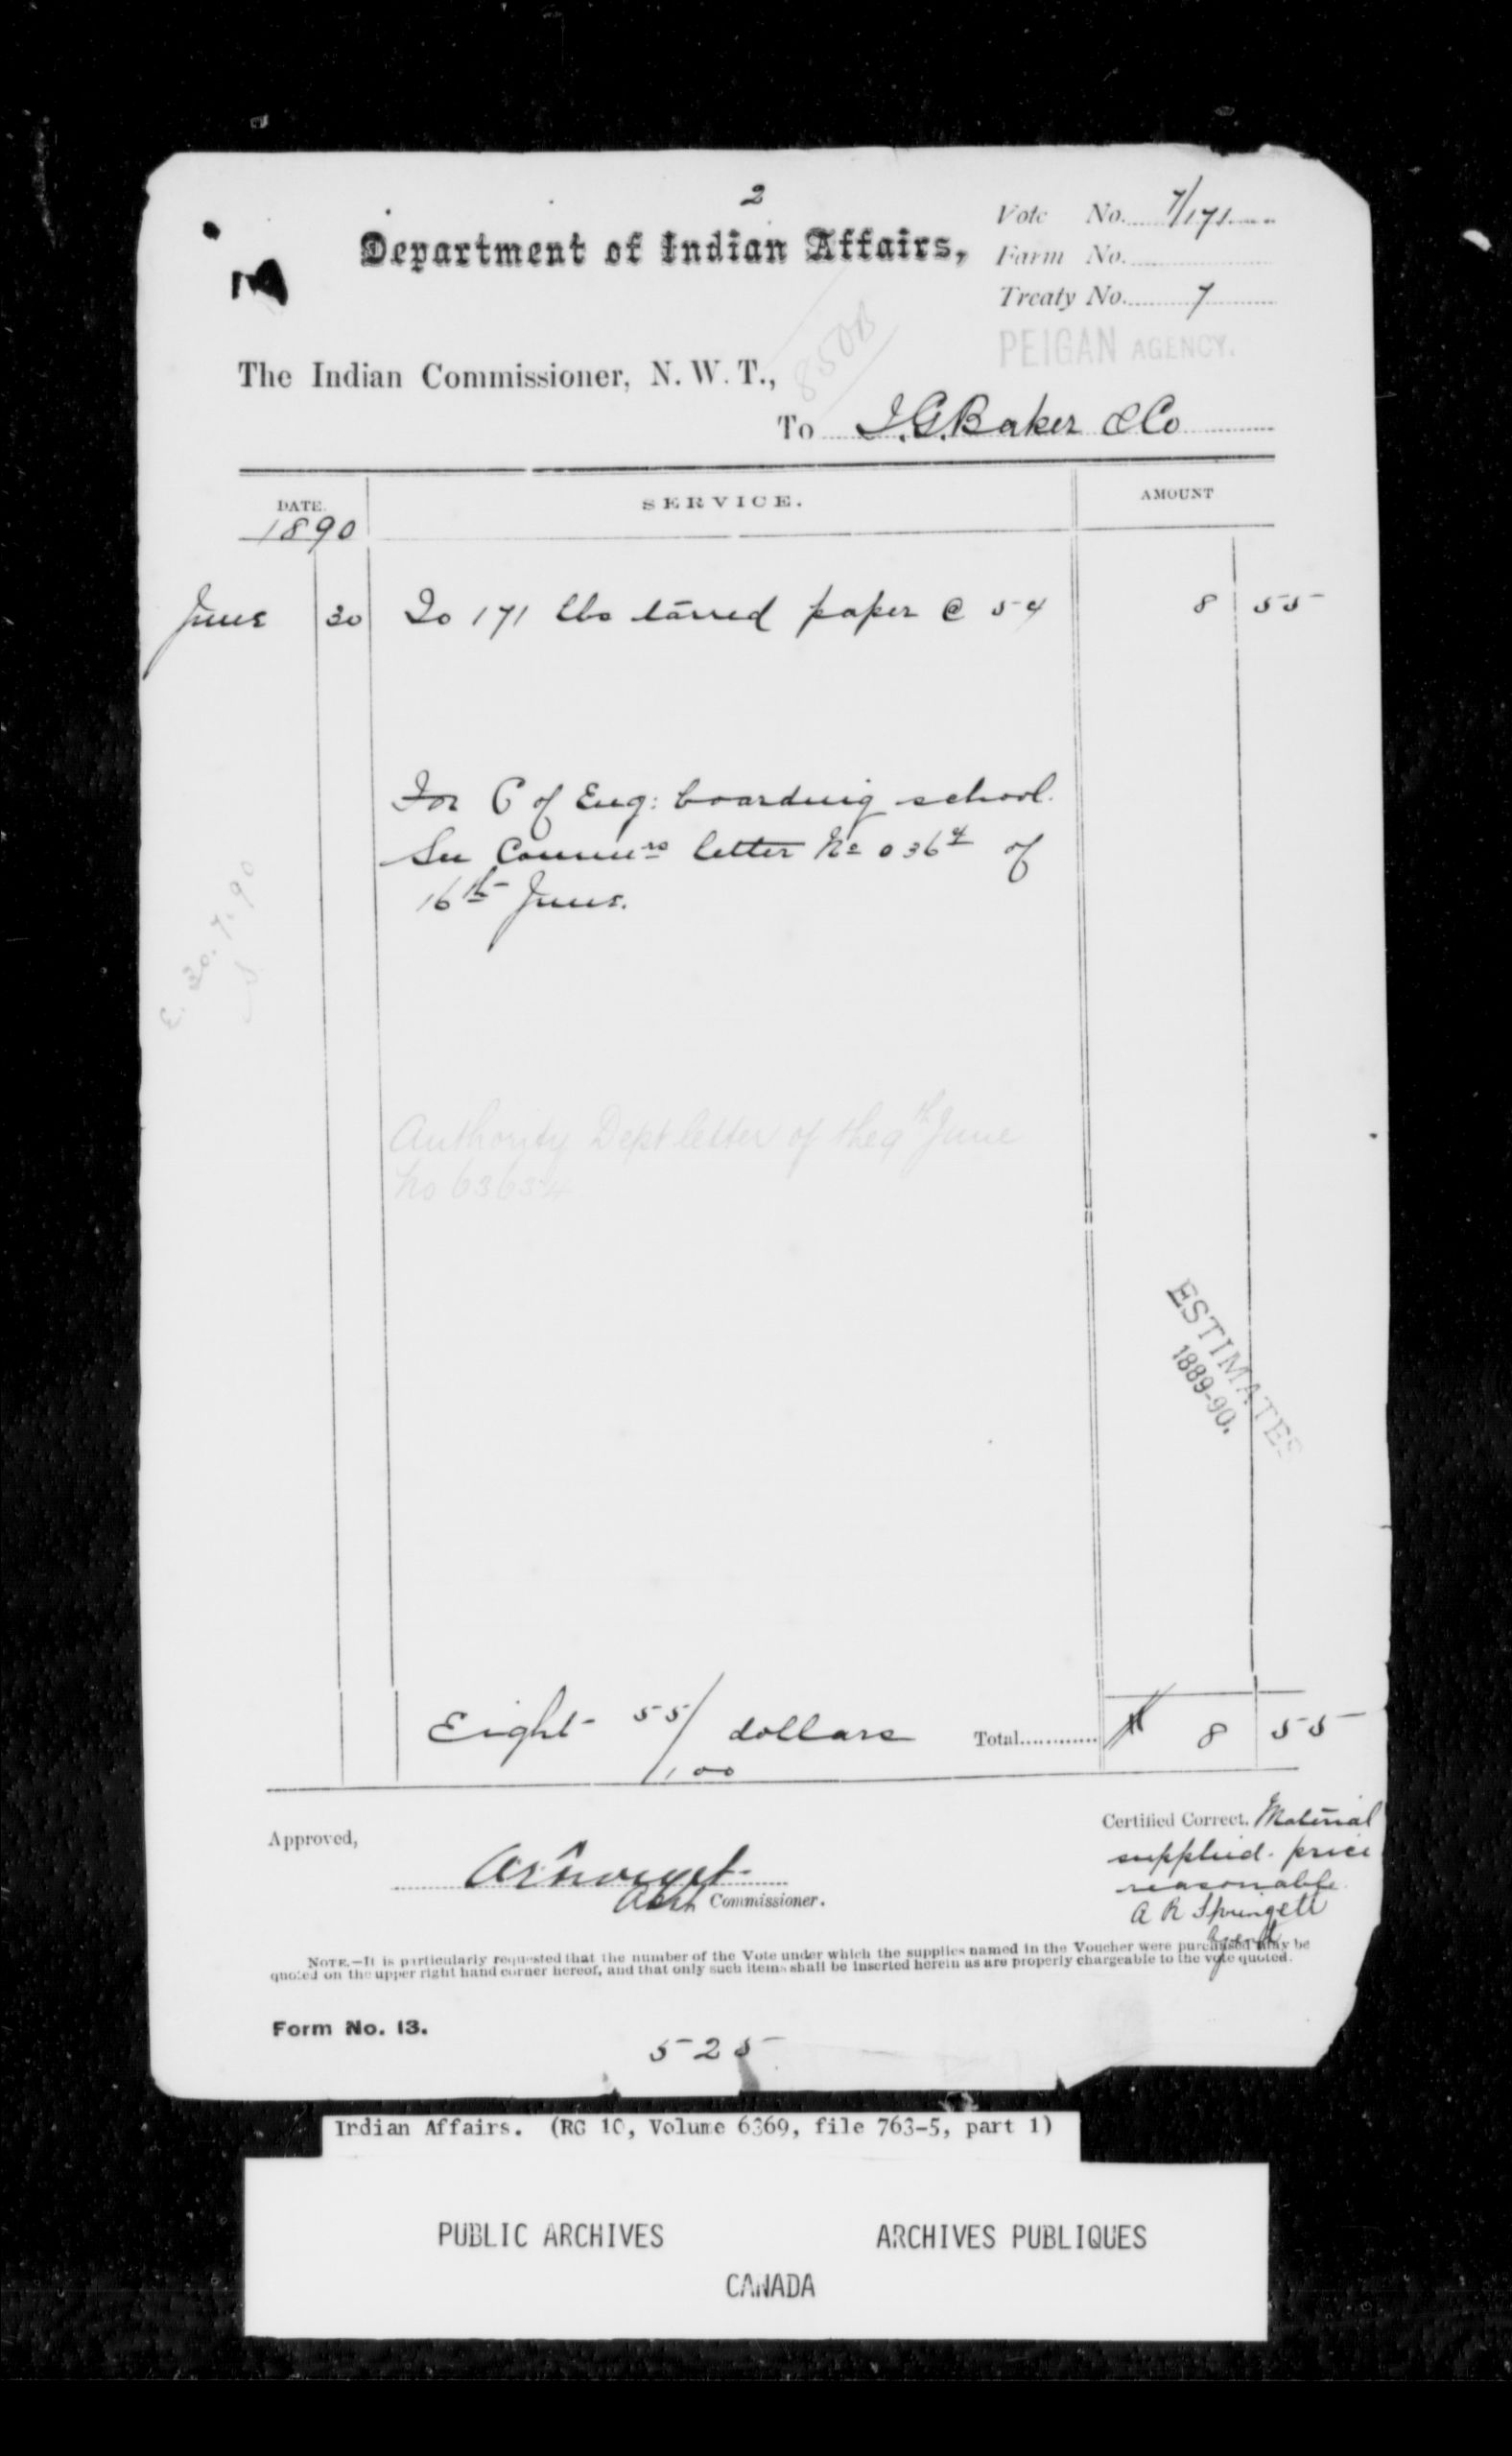 2
Department of Indian Affairs,
Vote No. 7/171
Farm No.
Treaty No. 7
PEIGAN AGENCY.
8508
The Indian Commissioner, N. W. T.,
To I.G. Baker & Co
DATE. SERVICE. AMOUNT
1890
June 30 To 171 lbs tarred paper @ 5¢ 8 55
For C of Eng: boarding school.
See Commrs letter No 036 of
16th June.
E. 30.7.90
Authority Dept letter of the 9th June
No 63634
ESTIMATES
1889-90.
Eight 55/100 dollars Total $ 8 55
Approved,
Certified Correct. Material
supplied. price
reasonable.
A R Springett
Agent
Asst Commissioner.
NOTE.—It is particularly requested that the number of the Vote under which the supplies named in the Voucher were purchased may be
quoted on the upper right hand corner hereof, and that only such items shall be inserted herein as are properly chargeable to the vote quoted.
Form No. 13.
525
Indian Affairs. (RG 10, Volume 6369, file 763-5, part 1)
PUBLIC ARCHIVES ARCHIVES PUBLIQUES
CANADA